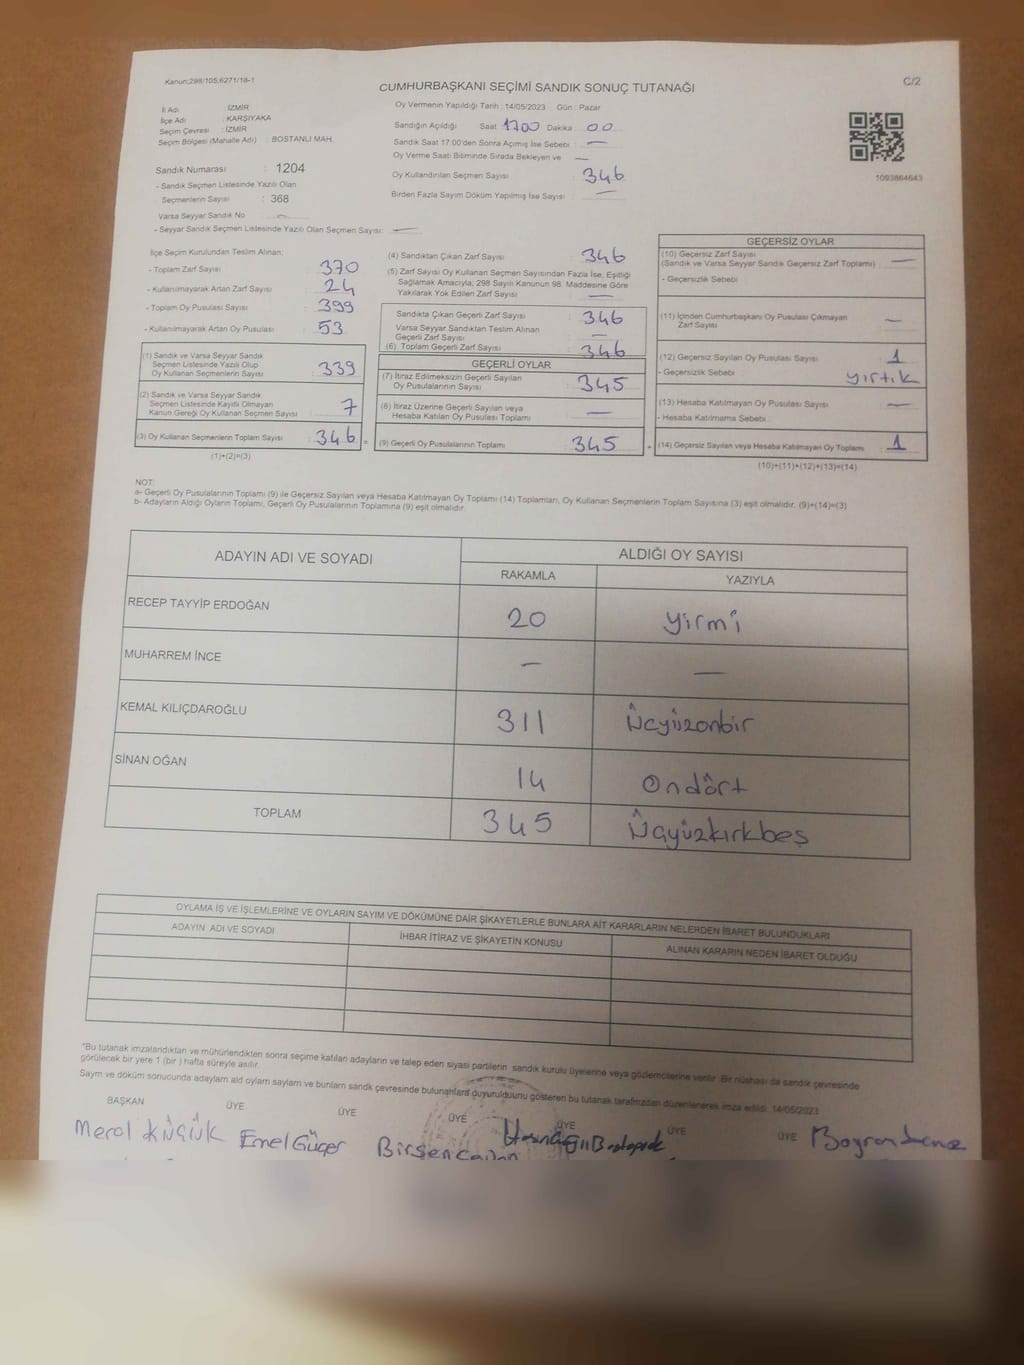 Kanun;298/105,6271/18-1
C/2
CUMHURBAŞKANI SEÇİMİ SANDIK SONUÇ TUTANAĞI
İl Adı : İZMİR
İlçe Adı : KARŞIYAKA
Seçim Çevresi : İZMİR
Seçim Bölgesi (Mahalle Adı) : BOSTANLI MAH.
Sandık Numarası : 1204
- Sandık Seçmen Listesinde Yazılı Olan
Seçmenlerin Sayısı : 368
Varsa Seyyar Sandık No —
- Seyyar Sandık Seçmen Listesinde Yazılı Olan Seçmen Sayısı: —
Oy Vermenin Yapıldığı Tarih : 14/05/2023 Gün : Pazar
Sandığın Açıldığı Saat 1700 Dakika : 00
Sandık Saat 17:00'den Sonra Açımış İse Sebebi : —
Oy Verme Saati Bitiminde Sırada Bekleyen ve —
Oy Kullandırılan Seçmen Sayısı : 346
Birden Fazla Sayım Döküm Yapılmış İse Sayısı : —
1093864643
İlçe Seçim Kurulundan Teslim Alınan;
- Toplam Zarf Sayısı : 370
- Kullanılmayarak Artan Zarf Sayısı : 24
- Toplam Oy Pusulası Sayısı : 399
- Kullanılmayarak Artan Oy Pusulası : 53
(1) Sandık ve Varsa Seyyar Sandık
Seçmen Listesinde Yazılı Olup
Oy Kullanan Seçmenlerin Sayısı : 339
(2) Sandık ve Varsa Seyyar Sandık
Seçmen Listesinde Kayıtlı Olmayan
Kanun Gereği Oy Kullanan Seçmen Sayısı : 7
(3) Oy Kullanan Seçmenlerin Toplam Sayısı : 346 =
(1)+(2)=(3)
(4) Sandıktan Çıkan Zarf Sayısı : 346
(5) Zarf Sayısı Oy Kullanan Seçmen Sayısından Fazla İse, Eşitliği
Sağlamak Amacıyla; 298 Sayılı Kanunun 98. Maddesine Göre
Yakılarak Yok Edilen Zarf Sayısı : —
Sandıkta Çıkan Geçerli Zarf Sayısı : 346
Varsa Seyyar Sandıktan Teslim Alınan
Geçerli Zarf Sayısı : —
(6) Toplam Geçerli Zarf Sayısı : 346
GEÇERLİ OYLAR
(7) İtiraz Edilmeksizin Geçerli Sayılan
Oy Pusulalarının Sayısı : 345
(8) İtiraz Üzerine Geçerli Sayılan veya
Hesaba Katılan Oy Pusulası Toplamı : —
(9) Geçerli Oy Pusulalarının Toplamı : 345 +
GEÇERSİZ OYLAR
(10) Geçersiz Zarf Sayısı
(Sandık ve Varsa Seyyar Sandık Geçersiz Zarf Toplamı) : —
- Geçersizlik Sebebi
(11) İçinden Cumhurbaşkanı Oy Pusulası Çıkmayan
Zarf Sayısı : —
(12) Geçersiz Sayılan Oy Pusulası Sayısı : 1
- Geçersizlik Sebebi : yırtık
(13) Hesaba Katılmayan Oy Pusulası Sayısı : —
- Hesaba Katılmama Sebebi
(14) Geçersiz Sayılan veya Hesaba Katılmayan Oy Toplamı : 1
(10)+(11)+(12)+(13)=(14)
NOT:
a- Geçerli Oy Pusulalarının Toplamı (9) ile Geçersiz Sayılan veya Hesaba Katılmayan Oy Toplamı (14) Toplamları, Oy Kullanan Seçmenlerin Toplam Sayısına (3) eşit olmalıdır. (9)+(14)=(3)
b- Adayların Aldığı Oyların Toplamı, Geçerli Oy Pusulalarının Toplamına (9) eşit olmalıdır.
ADAYIN ADI VE SOYADI ALDIĞI OY SAYISI
RAKAMLA YAZIYLA
RECEP TAYYİP ERDOĞAN 20 yirmi
MUHARREM İNCE — —
KEMAL KILIÇDAROĞLU 311 Üçyüzonbir
SİNAN OĞAN 14 Ondört
TOPLAM 345 Üçyüzkırkbeş
OYLAMA İŞ VE İŞLEMLERİNE VE OYLARIN SAYIM VE DÖKÜMÜNE DAİR ŞİKAYETLERLE BUNLARA AİT KARARLARIN NELERDEN İBARET BULUNDUKLARI
ADAYIN ADI VE SOYADI İHBAR İTİRAZ VE ŞİKAYETİN KONUSU ALINAN KARARIN NEDEN İBARET OLDUĞU
*Bu tutanak imzalandıktan ve mühürlendikten sonra seçime katılan adayların ve talep eden siyasi partilerin sandık kurulu üyelerine veya gözlemcilerine verilir. Bir nüshası da sandık çevresinde
görülecek bir yere 1 (bir) hafta süreyle asılır.
Sayım ve döküm sonucunda adayların aldı oyların sayıların ve bunların sandık çevresinde bulunanlara duyurulduunu gösteren bu tutanak tarafmzdan düzenlenerek imza edildi. 14/05/2023
BAŞKAN ÜYE ÜYE ÜYE ÜYE ÜYE ÜYE
Meral Küçük Emel Güçer Birsen